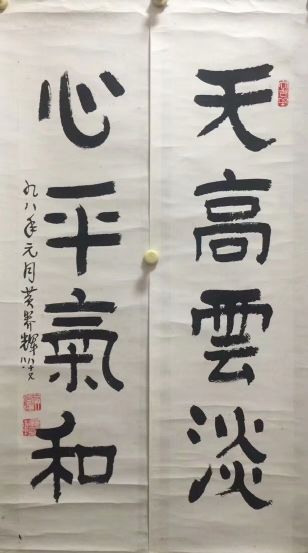 天高雲淡
心平氣和
九八年元月黃養輝